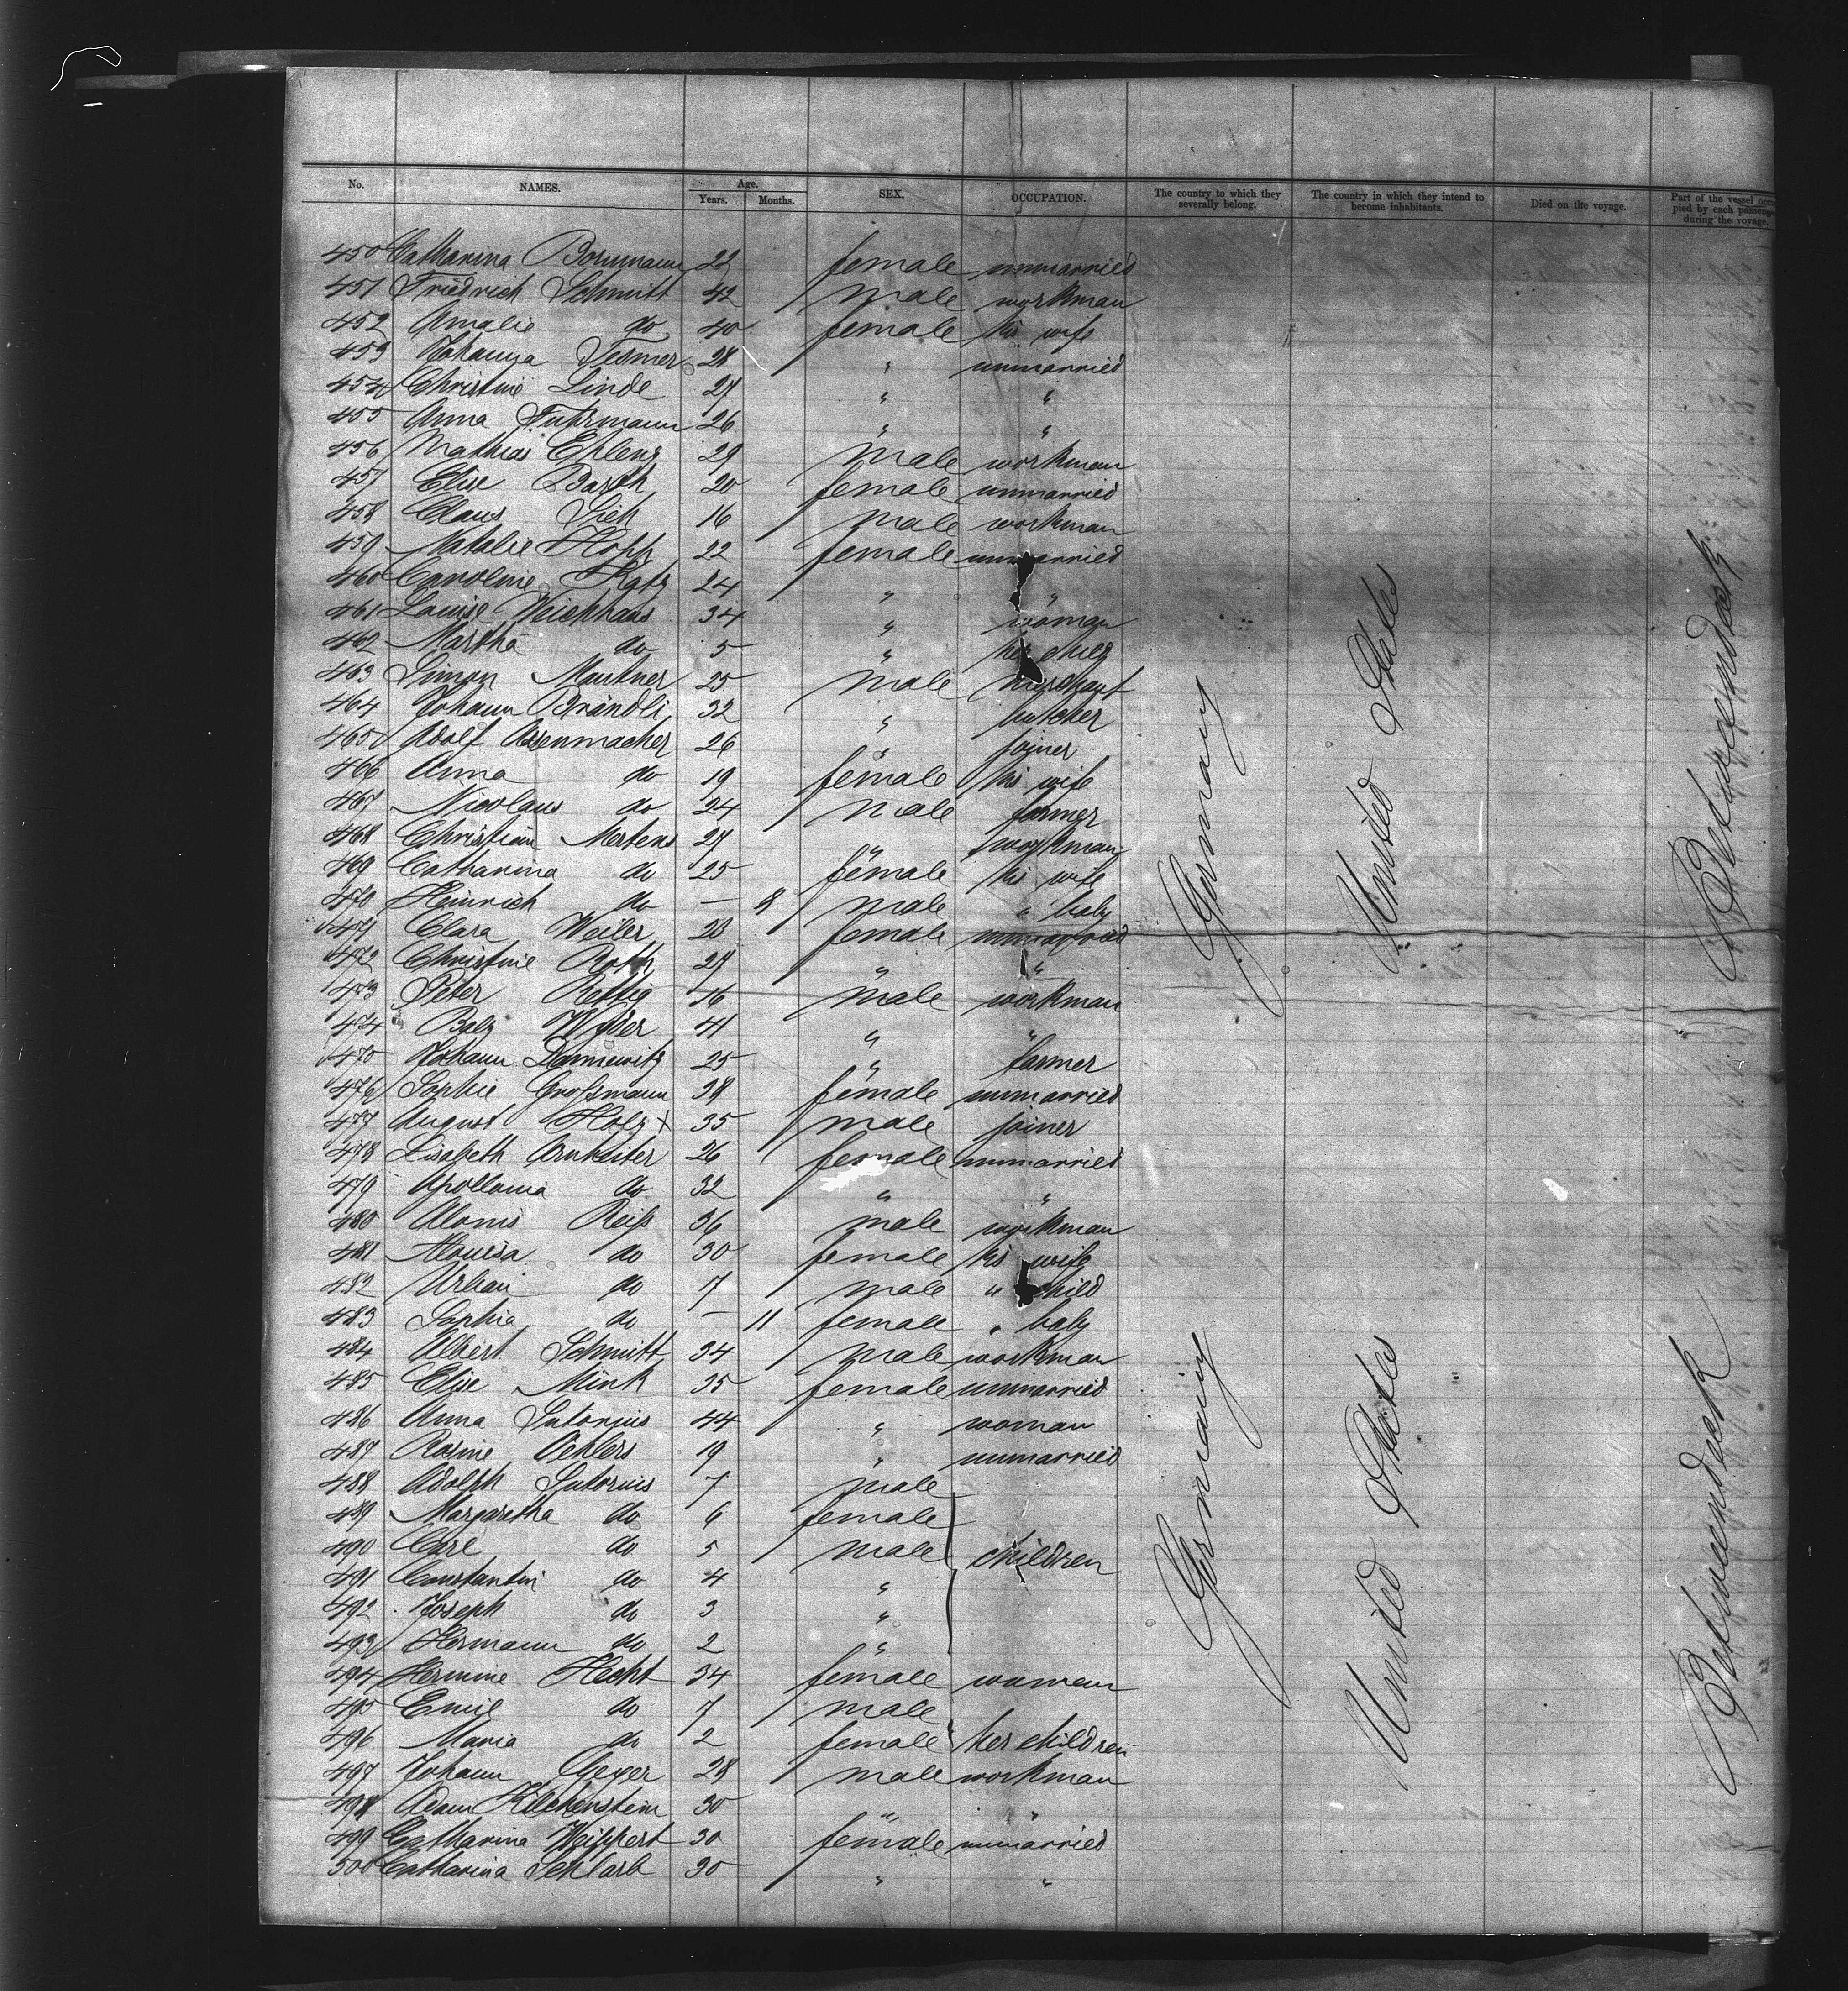 No. NAMES. Age. Years. Months. SEX. OCCUPATION. The country to which they severally belong. The country in which they intend to become inhabitants. Died on the voyage. Part of the vessel occu pied by each passeng during the voyage.
450 Catharina Bornmann 22 female unmarried
451 Friedrich Schmitt 42 male workman
452 Amalie do 40 female his wife
453 Johanna Tesmer 28 " unmarried
454 Christine Linde 27 " "
455 Anna Fuhrmann 26 " "
456 Mathias Ehleng 29 male workman
457 Elise Barth 20 female unmarried
458 Claus Sieh 16 male workman
459 Natalie Hopp 22 female unmarried
460 Caroline Katz 24 " "
461 Louise Weickhaus 34 " woman
462 Martha do 5 " her child
463 Simon Mautner 25 male merchant
464 Johann Brändli 32 " butcher
465 Adolf Assenmacher 26 " joiner
466 Anna do 19 female his wife
467 Nicolaus do 24 male farmer
468 Christian Mertens 27 " workman
469 Catharina do 25 female his wife
470 Heinrich do — 8 male " baby
471 Clara Weiler 23 female unmarried
472 Christine Roth 27 " "
473 Peter Rettig 16 male workman
474 Balz Wyder 41 " "
475 Johann Dannewitz 25 " farmer
476 Sophie Großmann 38 female unmarried
477 August Holz x 35 male joiner
478 Lisabeth Arnheiter 26 female unmarried
479 Apollonia do 32 " "
480 Alonis Reiß 36 male workman
481 Alouisa do 30 female his wife
482 Urban do 7 male " child
483 Sophia do — 11 female " baby
484 Albert Schmitt 34 male workman
485 Elise Mink 35 female unmarried
486 Anna Sutorius 44 " woman
487 Rosine Oehlers 19 " unmarried
488 Adolph Sutorius 7 male
489 Margaretha do 6 female
490 Carl do 5 male children
491 Constantin do 4 "
492 Joseph do 3 "
493 Hermann do 2 "
494 Hermine Hecht 34 female woman
495 Emil do 7 male
496 Maria do 2 female her children
497 Johann Geyer 28 male workman
498 Adam Kilchenstein 30 " "
499 Catharina Weippert 30 female unmarried
500 Catharina Schlarb 30 " "
Germany
United States
Betweendeck
Germany
United States
Betweendeck